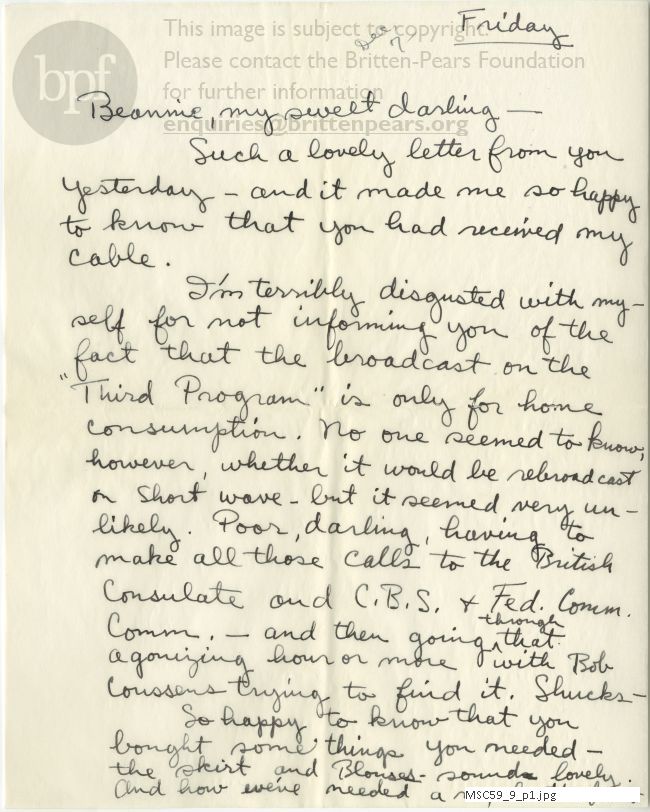 This image is subject to copyright.
Please contact the Britten-Pears Foundation
for further information
enquiries@brittenpears.org
bpf
Dec 7
Friday
Beannie, my sweet darling —
Such a lovely letter from you
yesterday – and it made me so happy
to know that you had received my
cable.
I'm terribly disgusted with my-
self for not informing you of the
fact that the broadcast on the
"Third Program" is only for home
consumption. No one seemed to know,
however, whether it would be rebroadcast
on short wave – but it seemed very un-
likely. Poor, darling, having to
make all those calls to the British
Consulate and C.B.S. & Fed. Comm.
Comm. – and then going through that
agonizing hour or more with Bob
Coussens trying to find it. Shucks –
So happy to know that you
bought some things you needed –
the skirt and Blouses – sounds lovely.
And how we've needed a
MSC59_9_p1.jpg